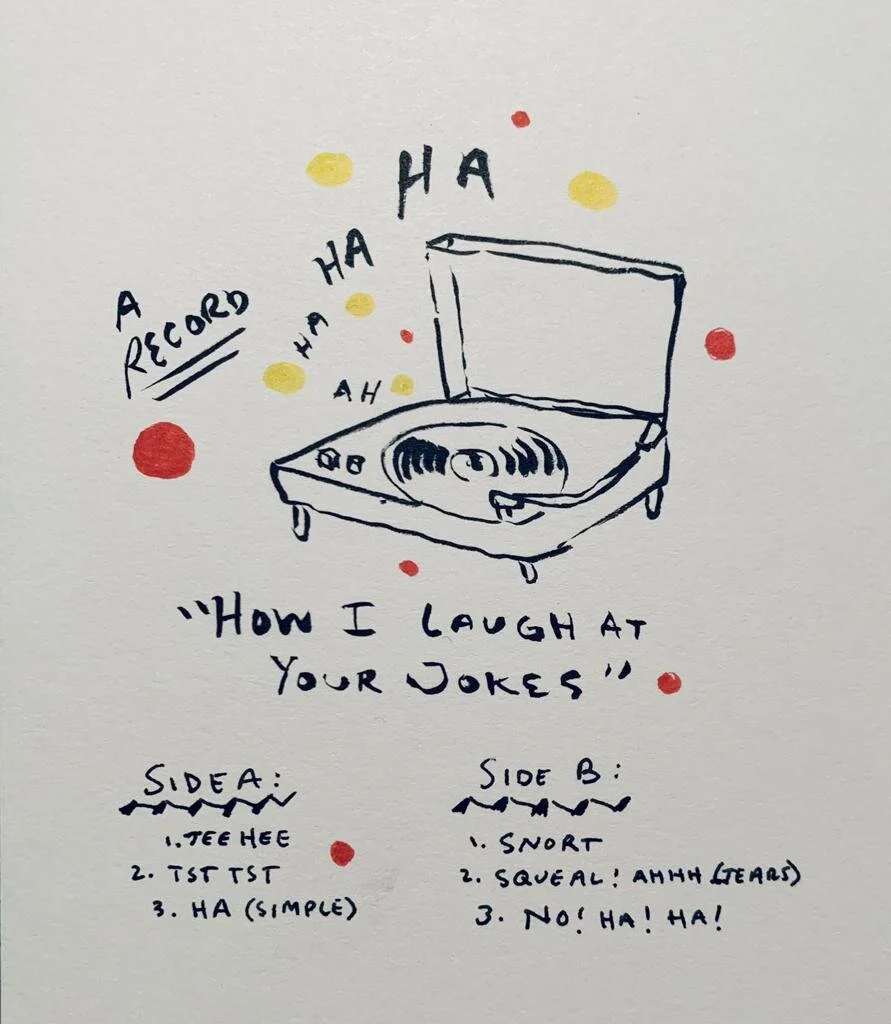 HA
HA
HA
AH
A
RECORD
"HOW I LAUGH AT
YOUR JOKES"
SIDE A:
1. TEE HEE
2. TST TST
3. HA (SIMPLE)
SIDE B:
1. SNORT
2. SQUEAL! AHHH (TEARS)
3. NO! HA! HA!